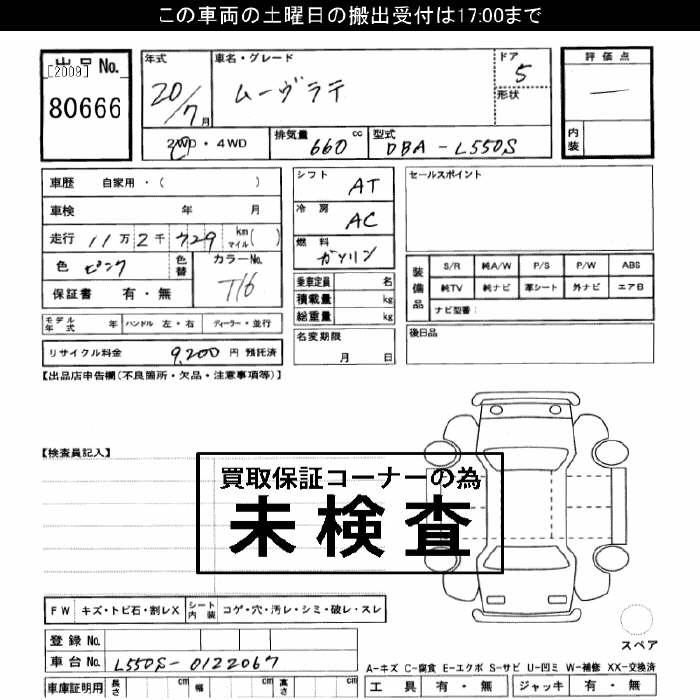 この車両の土曜日の搬出受付は17:00まで
出品No.
[2009]
80666
年式
20/7月
車名・グレード
ムーヴラテ
ドア
5
形状
評価点
—
内装
2WD・4WD
排気量 660 cc
型式 DBA-L550S
車歴 自家用・( )
車検 年 月
走行 11万2千729 km マイル( )
色 ピンク
色替
カラーNo.
T16
保証書 有・無
シフト AT
冷房 AC
燃料 ガソリン
乗車定員 名
積載量 kg
総重量 kg
セールスポイント
装備品
S/R 純A/W P/S P/W ABS
純TV 純ナビ 革シート 外ナビ エアB
ナビ型番:
モデル年式 年 ハンドル 左・右 ディーラー・並行
リサイクル料金 9,200 円 預託済
名変期限
月 日
後日品
【出品店申告欄(不良箇所・欠品・注意事項等)】
【検査員記入】
買取保証コーナーの為
未検査
FW キズ・トビ石・割レX シート内装 コゲ・穴・汚レ・シミ・破レ・スレ
登録No.
車台No. L550S-0122067
車庫証明用 長さ cm 幅 cm 高さ cm
スペア
A-キズ C-腐食 E-エクボ S-サビ U-凹ミ W-補修 XX-交換済
工具 有・無 ジャッキ 有・無